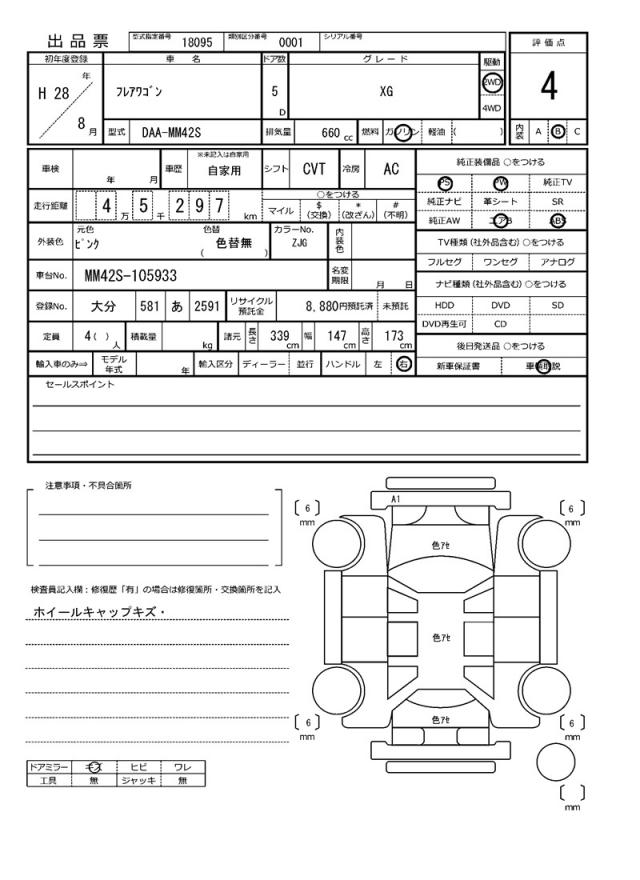 出品票 型式指定番号 18095 類別区分番号 0001 シリアル番号
初年度登録 車名 ドア数 グレード 駆動 評価点
H 28 年 8 月 フレアワゴン 5 D XG 2WD 4WD 4
型式 DAA-MM42S 排気量 660 cc 燃料 ガソリン 軽油 ( ) 内装 A B C
車検 年 月 車歴 ※未記入は自家用 自家用 シフト CVT 冷房 AC
走行距離 4 万 5 千 2 9 7 km ○をつける
マイル $ (交換) * (改ざん) # (不明)
外装色 元色 ピンク 色替 ( 色替無 ) カラーNo. ZJG 内装色
車台No. MM42S-105933 名変期限 月 日
登録No. 大分 581 あ 2591 リサイクル預託金 8,880円預託済 未預託
定員 4 ( ) 人 積載量 kg 諸元 長さ 339 cm 幅 147 cm 高さ 173 cm
輸入車のみ⇒ モデル年式 年 輸入区分 ディーラー 並行 ハンドル 左 右
純正装備品 ○をつける
PS PW 純正TV
純正ナビ 革シート SR
純正AW エアB ABS
TV種類 (社外品含む) ○をつける
フルセグ ワンセグ アナログ
ナビ種類 (社外品含む) ○をつける
HDD DVD SD
DVD再生可 CD
後日発送品 ○をつける
新車保証書 車輌取説
セールスポイント
注意事項・不具合箇所
検査員記入欄：修復歴「有」の場合は修復箇所・交換箇所を記入
ホイールキャップキズ・
ドアミラー キズ ヒビ ワレ
工具 無 ジャッキ 無
A1
[ 6 ] mm
[ 6 ] mm
色アセ
色アセ
色アセ
[ 6 ] mm
[ 6 ] mm
[ ] mm